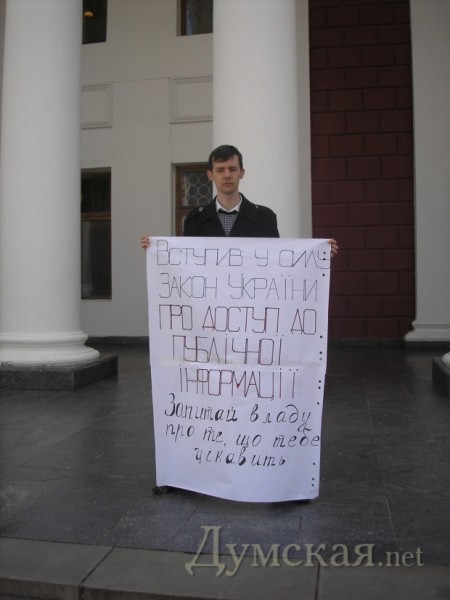 Вступив у силу
Закон України
про доступ до
публічної
інформації
Запитай владу
про те, що тебе
цікавить
Думская.net